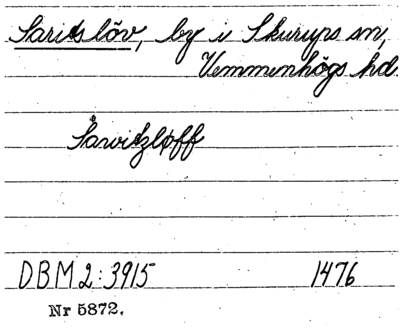 Saritslöv, by i Skurups sn,
Vemmenhögs hd.
Sawitzløff
DBM 2:3915 1476
Nr 5872.